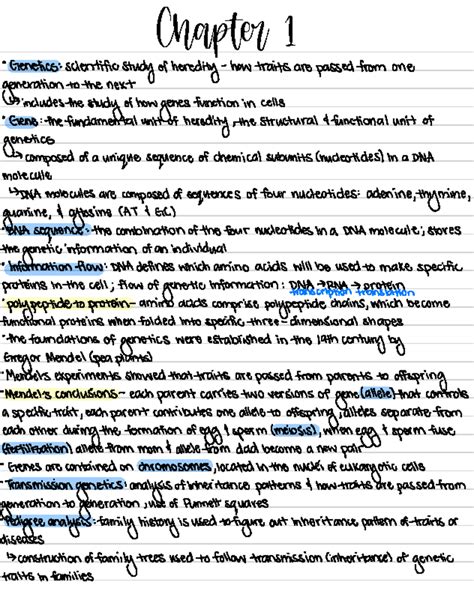 Chapter 1
• Genetics: scientific study of heredity - how traits are passed from one
generation to the next
↳ includes the study of how genes function in cells
• Gene: the fundamental unit of heredity, the structural & functional unit of
genetics
↳ composed of a unique sequence of chemical subunits (nucleotides) in a DNA
molecule
↳ DNA molecules are composed of sequences of four nucleotides: adenine, thymine,
guanine, & cytosine (AT & GC)
• DNA sequence: the combination of the four nucleotides in a DNA molecule; stores
the genetic information of an individual
• Information flow: DNA defines which amino acids will be used to make specific
proteins in the cell; flow of genetic information: DNA → RNA → protein
transcription translation
• polypeptide to protein - amino acids comprise polypeptide chains, which become
functional proteins when folded into specific three-dimensional shapes
• the foundations of genetics were established in the 19th century by
Gregor Mendel (pea plants)
• Mendel's experiments showed that traits are passed from parents to offspring
• Mendel's conclusions - each parent carries two versions of gene (allele) that controls
a specific trait, each parent contributes one allele to offspring, alleles separate from
each other during the formation of egg & sperm (meiosis), when egg & sperm fuse
(fertilization) allele from mom & allele from dad become a new pair
• Genes are contained on chromosomes, located in the nuclei of eukaryotic cells
• Transmission genetics: analysis of inheritance patterns & how traits are passed from
generation to generation; use of Punnett squares
• Pedigree analysis: family history is used to figure out inheritance pattern of traits or
diseases
↳ construction of family trees used to follow transmission (inheritance) of genetic
traits in families